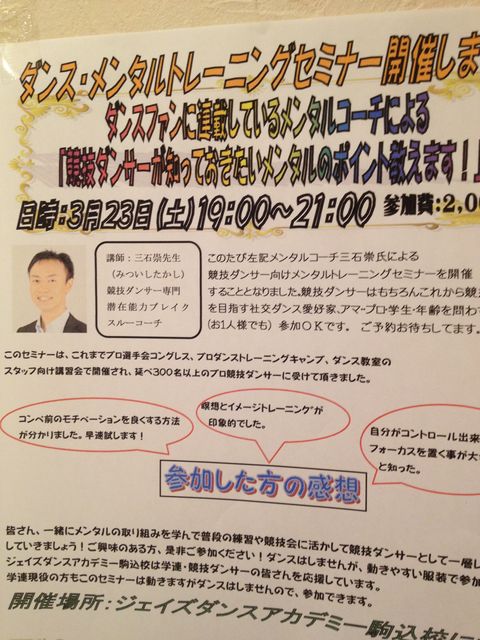 ダンス・メンタルトレーニングセミナー開催しま
ダンスファンに連載しているメンタルコーチによる
「競技ダンサーが知っておきたいメンタルのポイント教えます！」
日時：3月23日(土)19：00～21：00 参加費：2,0
講師：三石崇先生
（みついしたかし）
競技ダンサー専門
潜在能力ブレイク
スルーコーチ
このたび左記メンタルコーチ三石崇氏による
競技ダンサー向けメンタルトレーニングセミナーを開催
することとなりました。競技ダンサーはもちろんこれから競技
を目指す社交ダンス愛好家、アマ・プロ・学生・年齢を問わず
（お1人様でも）参加OKです。ご予約お待ちしてます。
このセミナーは、これまでプロ選手会コングレス、プロダンストレーニングキャンプ、ダンス教室の
スタッフ向け講習会で開催され、延べ300名以上のプロ競技ダンサーに受けて頂きました。
コンペ前のモチベーションを良くする方法
が分かりました。早速試します！
瞑想とイメージトレーニングが
印象的でした。
自分がコントロール出来
フォーカスを置く事が大
と知った。
参加した方の感想
皆さん、一緒にメンタルの取り組みを学んで普段の練習や競技会に活かして競技ダンサーとして一層し
ていきましょう！ご興味のある方、是非ご参加ください！ダンスはしませんが、動きやすい服装で参加
ジェイズダンスアカデミー駒込校は学連・競技ダンサーの皆さんを応援しています。
学連現役の方もこのセミナーは動きますがダンスはしませんので、参加できます。
開催場所：ジェイズダンスアカデミー駒込校